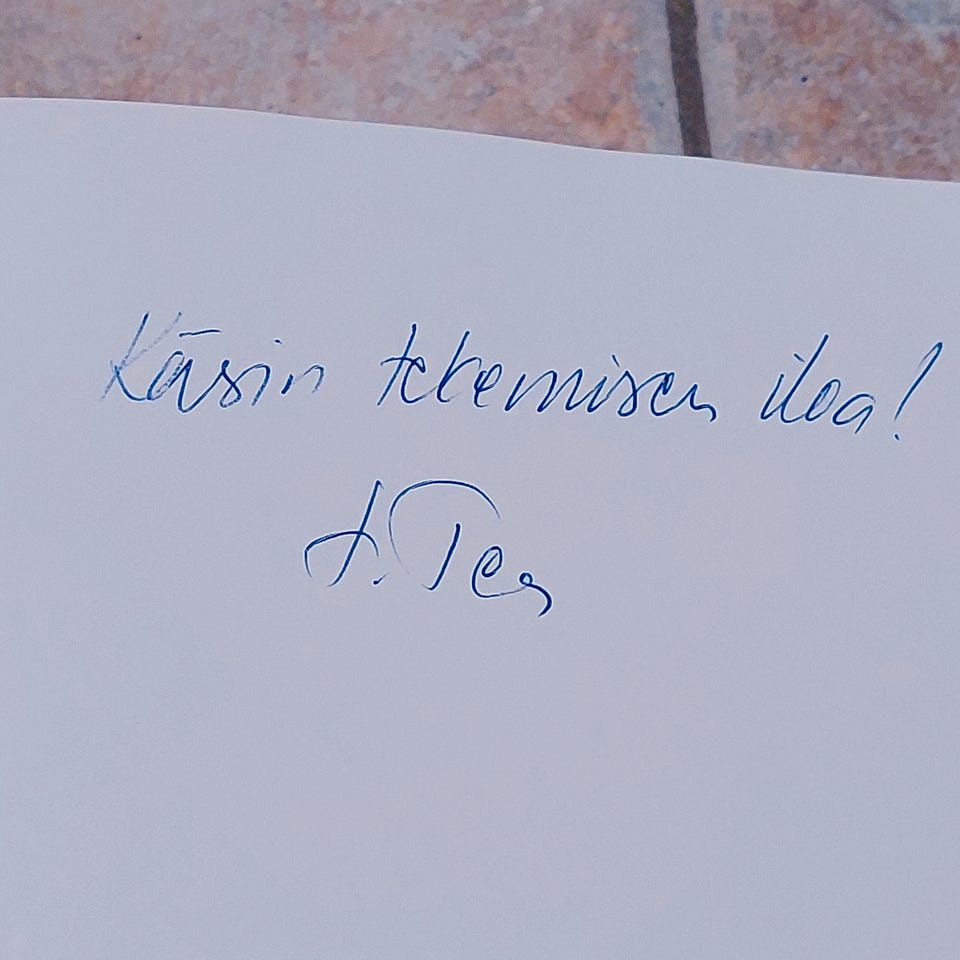 Käsin tekemisen iloa!